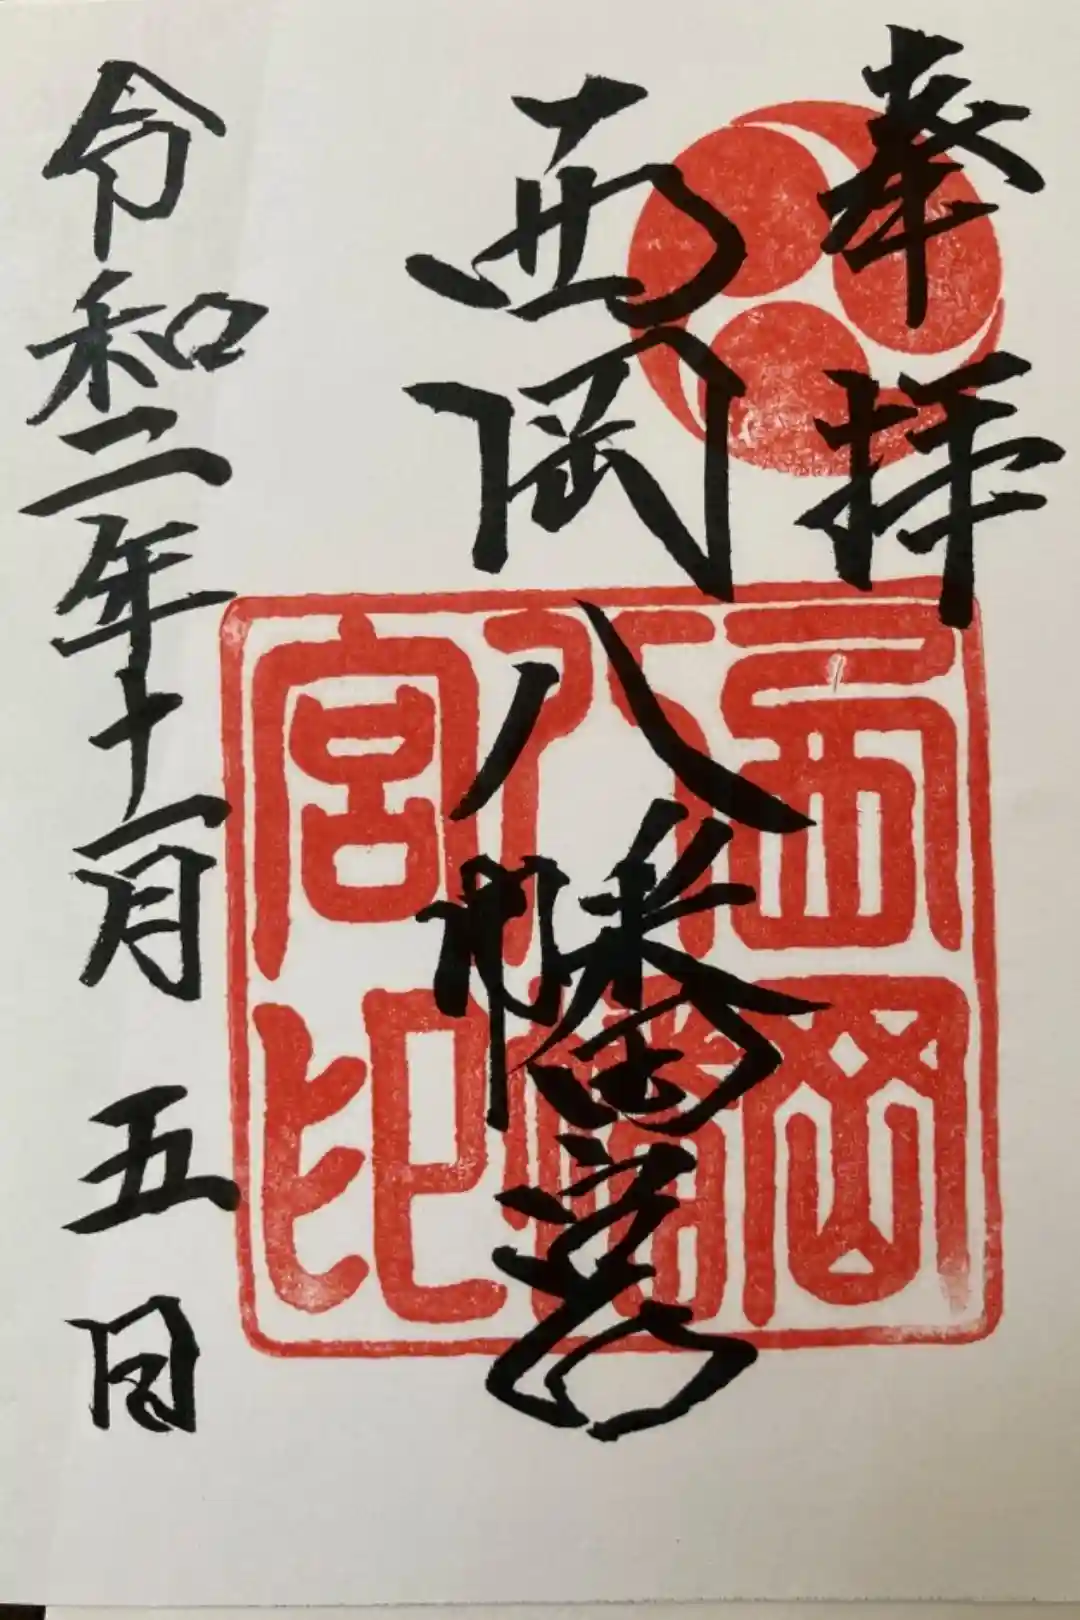 奉拝
西岡八幡宮
令和二年十一月五日
西岡
八幡
宮印